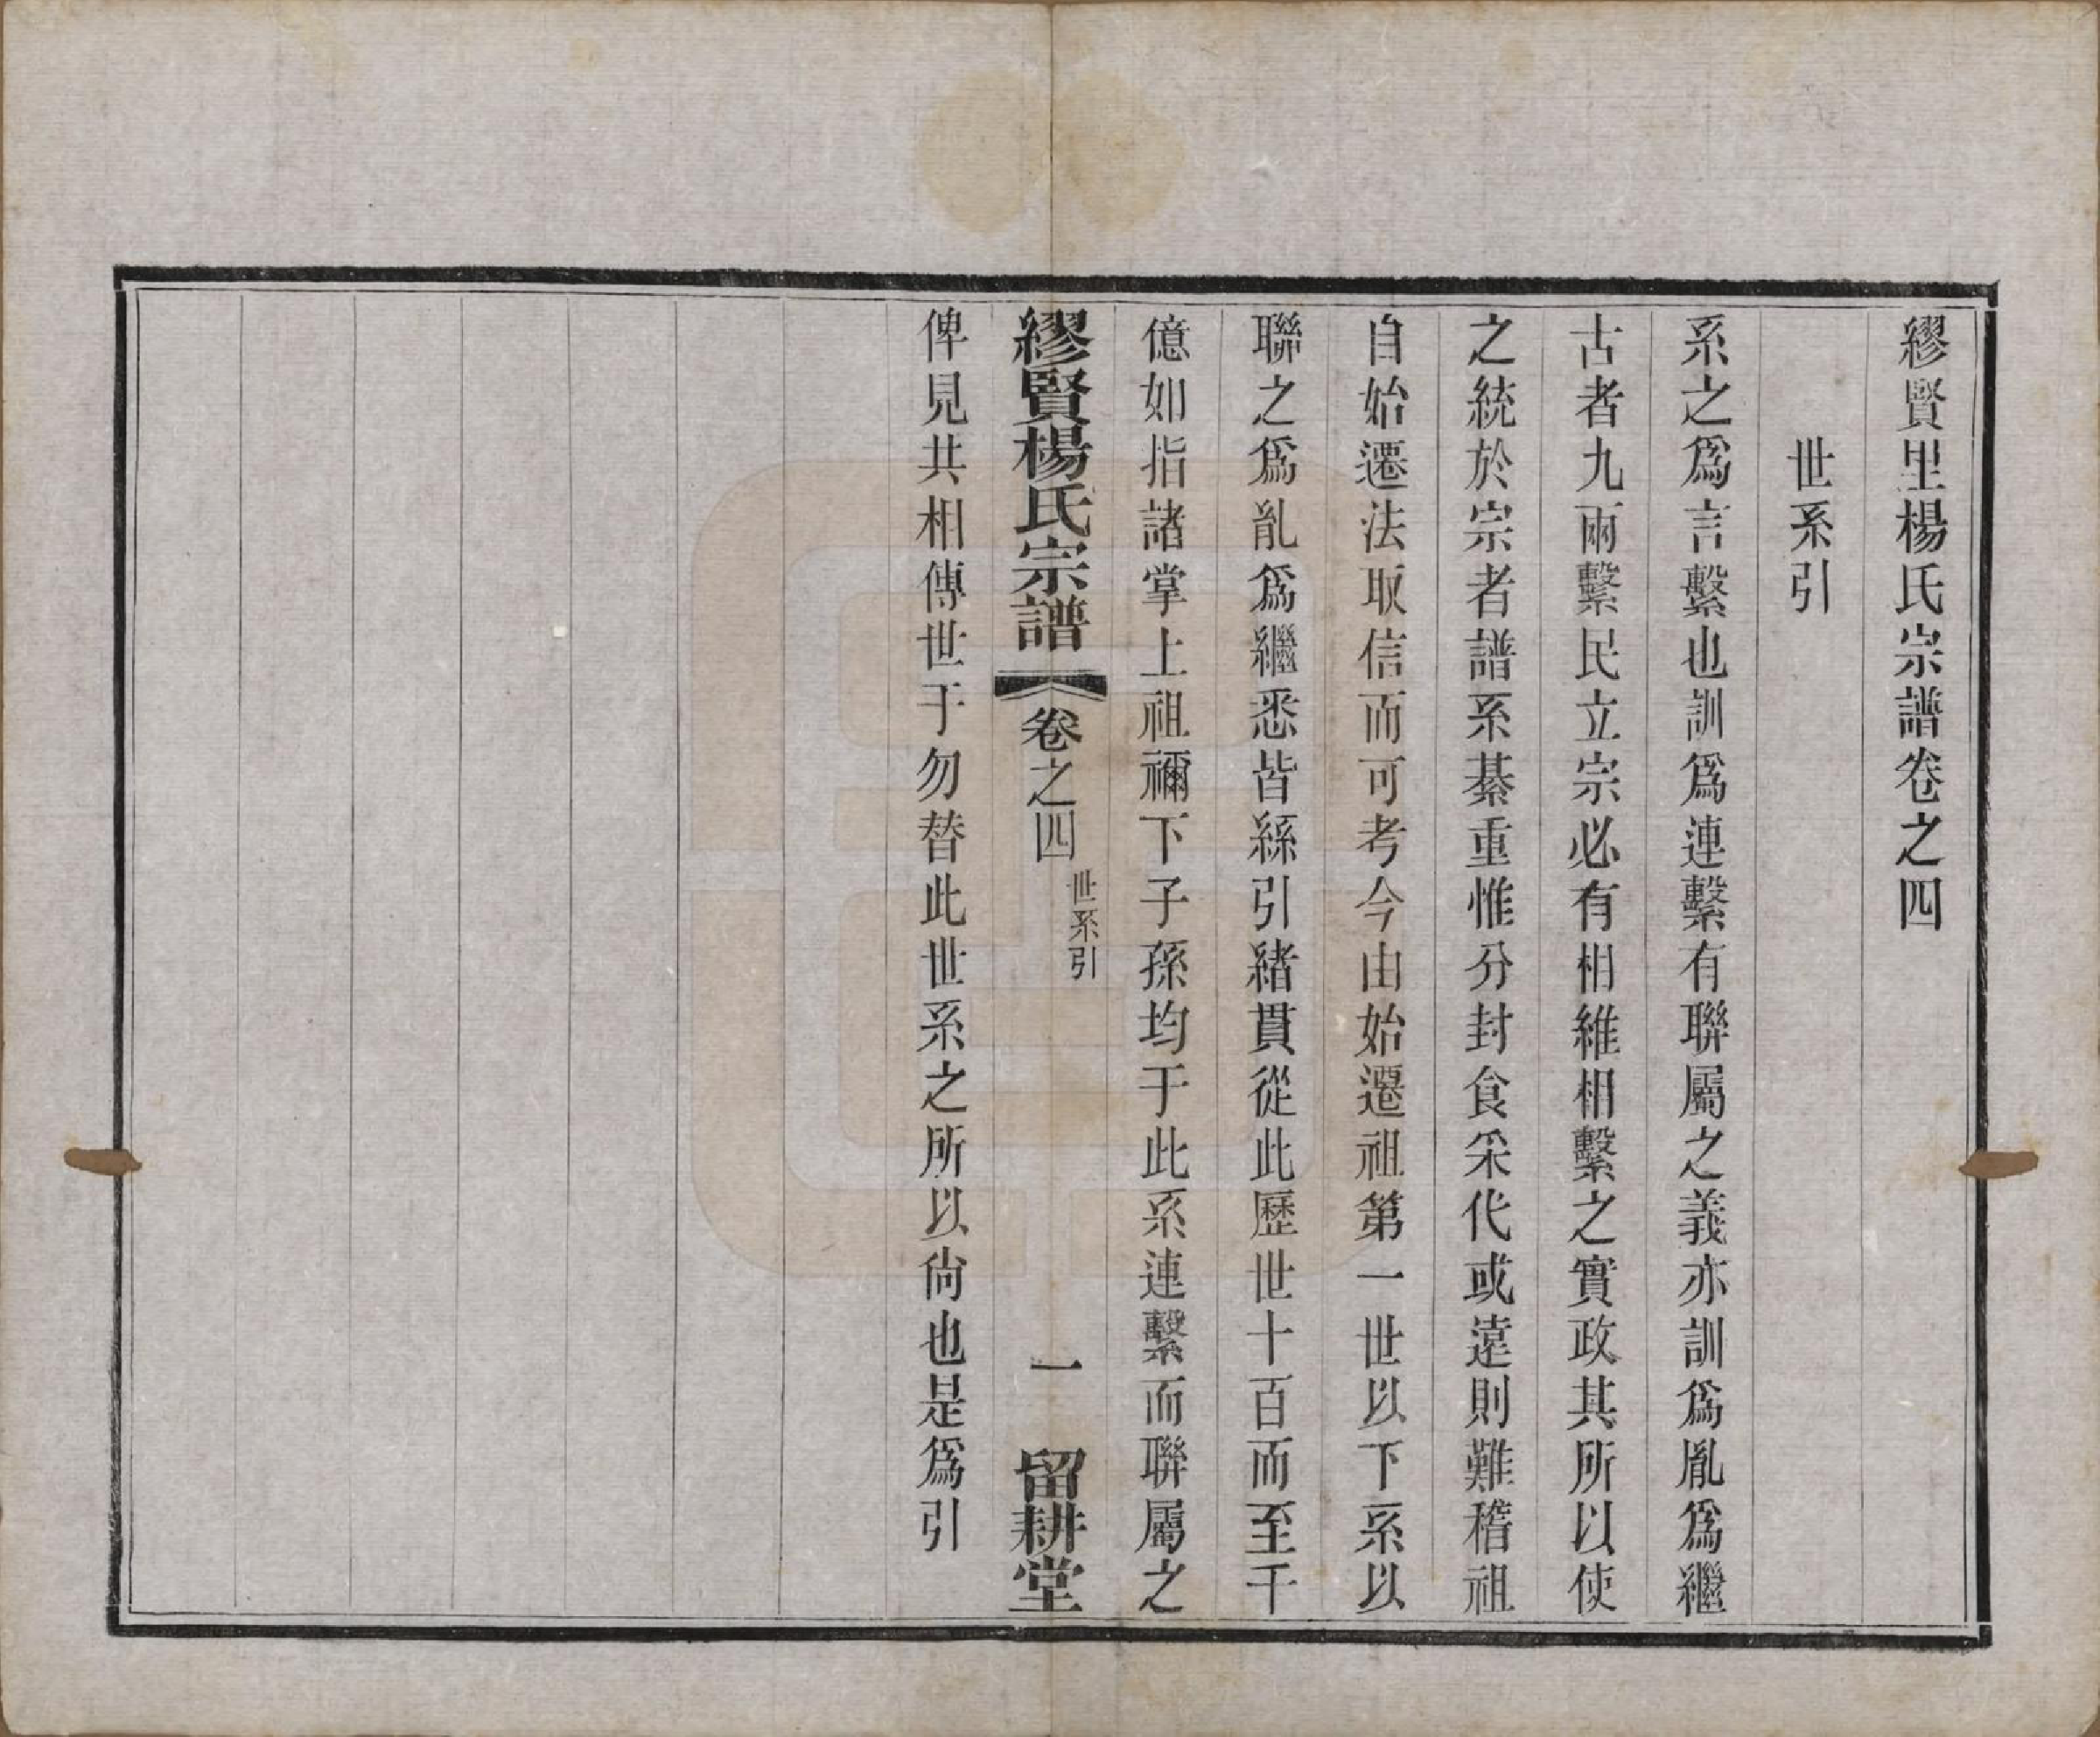 繆賢里楊氏宗譜卷之四
世系引
系之爲言繫也訓爲連繫有聯屬之義亦訓爲胤爲繼
古者九兩繫民立宗必有相維相繫之實政其所以使
之統於宗者譜系綦重惟分封食采代或遠則難稽祖
自始遷法取信而可考今由始遷祖第一世以下系以
聯之爲胤爲繼悉皆繇引緒貫從此歷世十百而至千
億如指諸掌上祖禰下子孫均于此系連繫而聯屬之
繆賢楊氏宗譜
卷之四
世系引
一
留耕堂
俾見共相傳世于勿替此世系之所以尙也是爲引